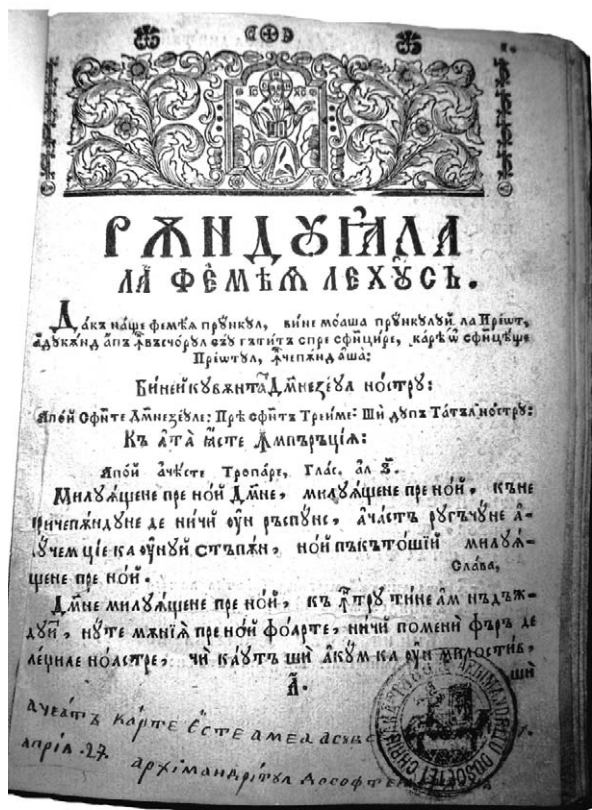 РѪНДꙊꙖЛА
ЛА ФЕМѢѦ ЛЕХꙊСЪ.
Дакъ наще фемѣѧ прꙋнкул, вине моаша прꙋнкулуй ла Прешт,
адукѫнд апъ ꙟвъсчорул сѣу гътитъ спре сфинцире, карѣ ѡ сфинцѣще
Прештул, ꙟчепѫнд аша:
Бине й кувѫнтат Дмнезеул нострꙋ:
Апой Сфинте Дмнезеуле: Прѣ сфинтъ Треиме: Ши дупъ Татъл нострꙋ:
Къ ата ꙗсте ꙟмпъръція:
Апой ачесте Тропаре, Глас, ал
Милуѧщене пре ной Дмне, милуѧщене пре ной, къ не
причепѫндуне де ничй ун ръспунс, ачастъ ругъчуне а
дучем ціе ка унуй стъпѫн, ной пъкътошїй милуѧ-
щене пре ной.
Слава,
Дмне милуѧщене пре ной, къ ꙟтру тине ам нъдъж-
дуит, нуте мѫнїѧ пре ной фоарте, ничй помени фъръ де
леџиле ноастре, чй каутъ ши акум ка ун милостив,
ши
ачеатъ карте есте амеа
априлъ 27.
архїмандритул Дософте